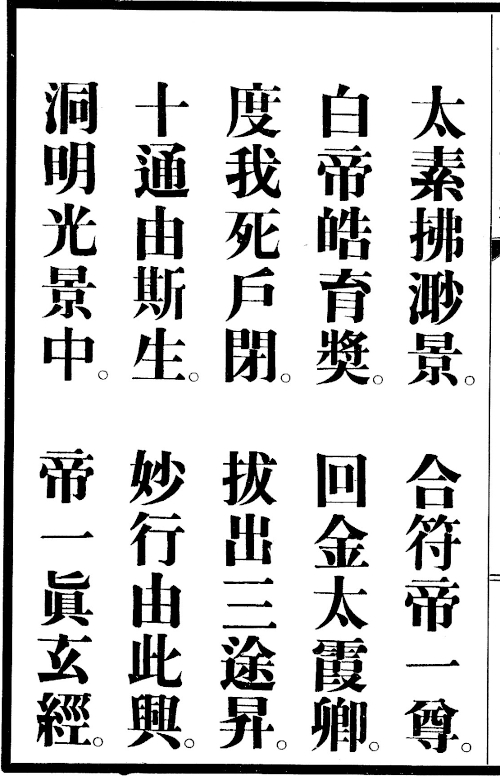 太素拂渺景。合符帝一尊。
白帝皓育獎。回金太霞卿。
度我死戶閉。拔出三途昇。
十通由斯生。妙行由此興。
洞明光景中。帝一眞玄經。